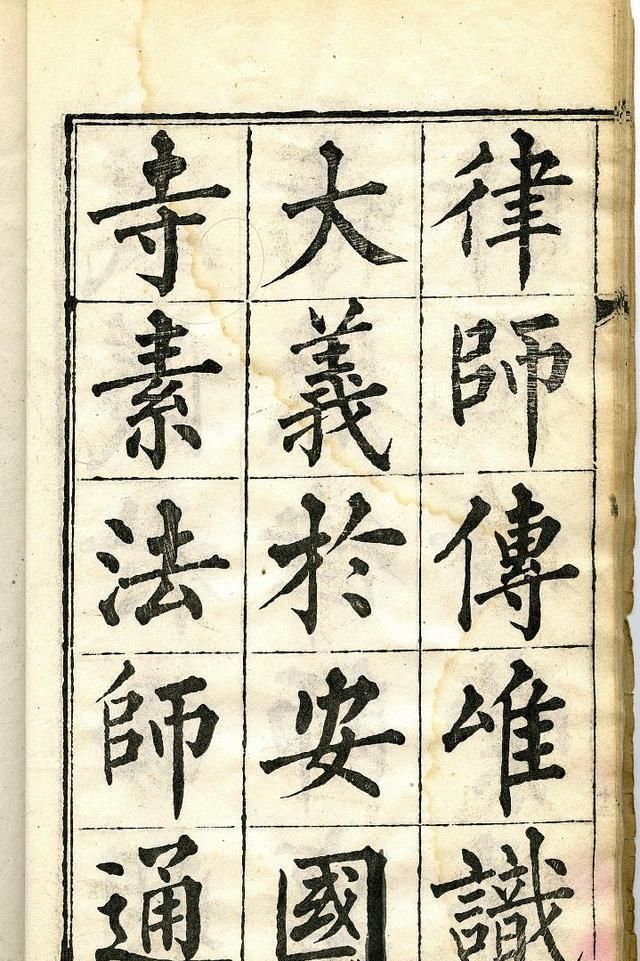 律師傳唯識
大義於安國
寺素法師通